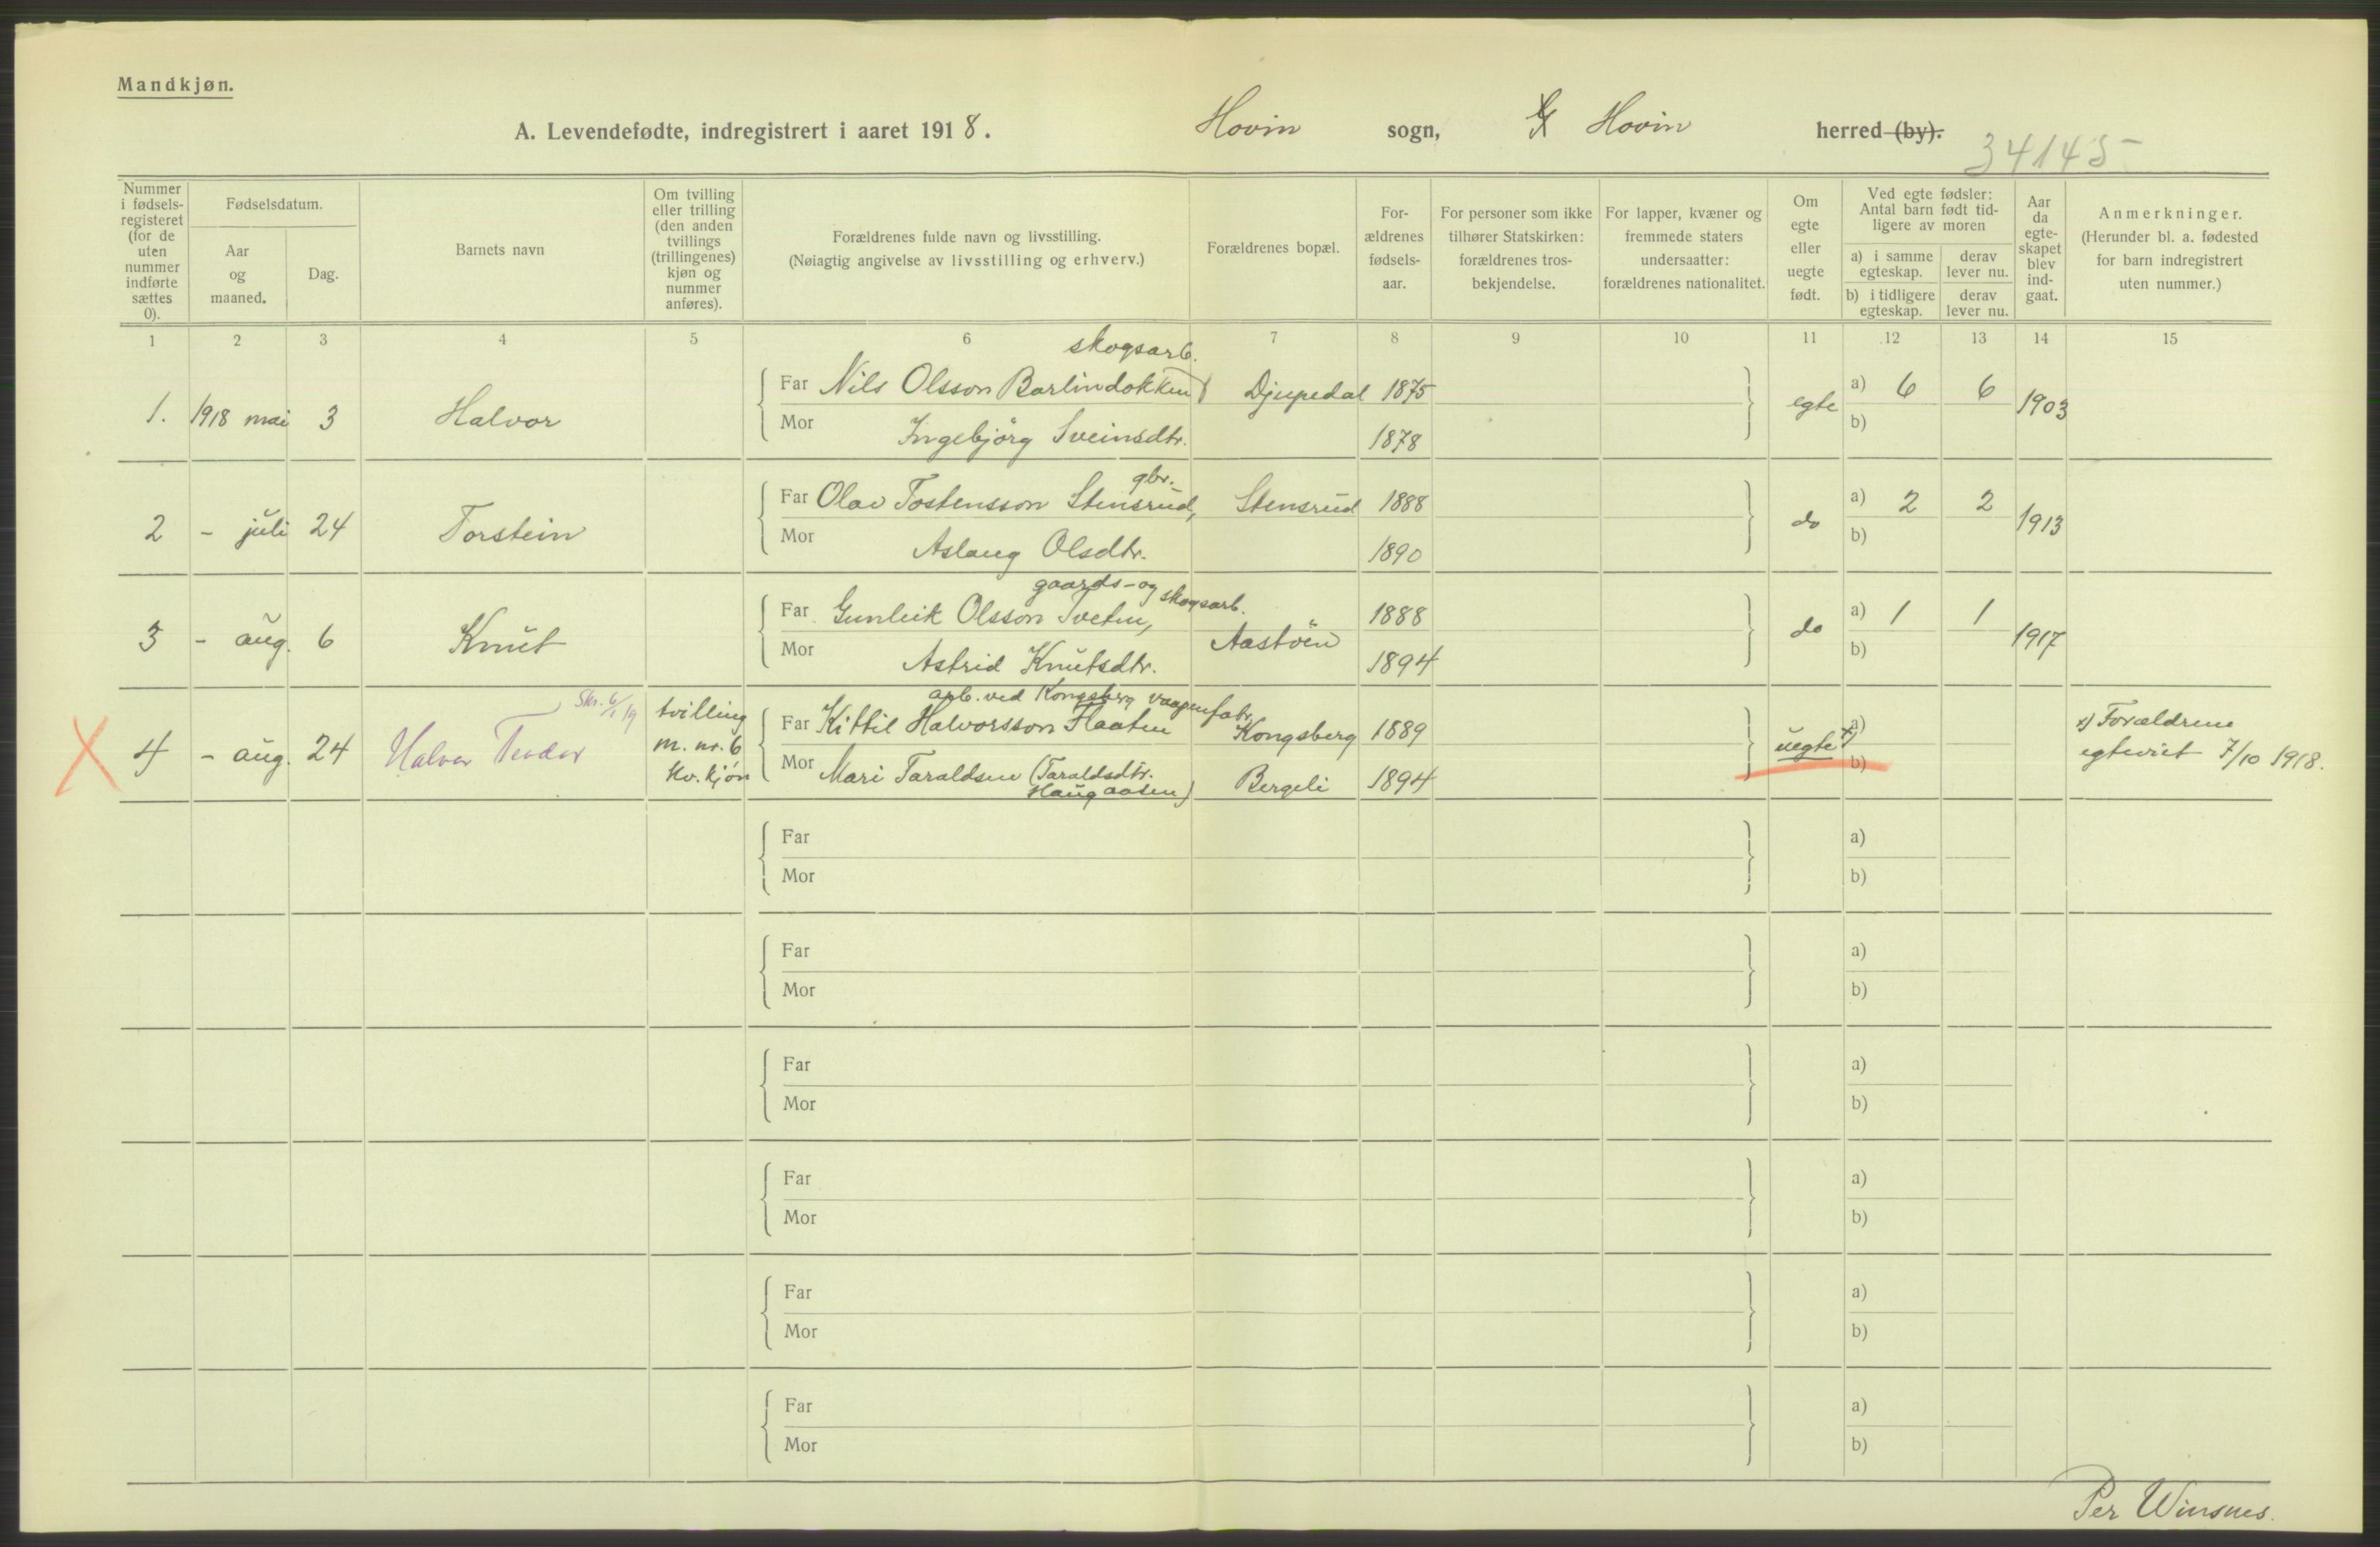 Mandkjøn.
A. Levendefødte, indregistrert i aaret 1918. Hovin sogn, Hovin herred (by).
34145
Nummer i fødselsregisteret (for de uten nummer indførte sættes 0).
Fødselsdatum.
Aar og maaned.
Dag.
Barnets navn
Om tvilling eller trilling (den anden tvillings (trillingenes) kjøn og nummer anføres).
Forældrenes fulde navn og livsstilling.
(Nøiagtig angivelse av livsstilling og erhverv.)
Forældrenes bopæl.
For-ældrenes fødsels-aar.
For personer som ikke tilhører Statskirken: forældrenes tros-bekjendelse.
For lapper, kvæner og fremmede staters undersaatter: forældrenes nationalitet.
Om egte eller uegte født.
Ved egte fødsler: Antal barn født tid-ligere av moren
a) i samme egteskap.
derav lever nu.
b) i tidligere egteskap.
derav lever nu.
Aar da egte-skapet blev ind-gaat.
Anmerkninger.
(Herunder bl. a. fødested for barn indregistrert uten nummer.)
1 2 3 4 5 6 7 8 9 10 11 12 13 14 15
skogsarb.
1. 1918 mai 3 Halvor Far Nils Olsson Barlindokken Djupedal 1875 egte a) 6 6 1903
Mor Ingebjörg Sveinsdtr. 1878 b)
gbr.
2 - juli 24 Torstein Far Olav Tostensson Stensrud, Stensrud 1888 do a) 2 2 1913
Mor Aslaug Olsdtr. 1890 b)
gaards- og skogsarb.
3 - aug. 6 Knut Far Gunleik Olsson Tveten, Aastöin 1888 do a) 1 1 1917
Mor Astrid Knutsdtr. 1894 b)
Skr. 6/1 19
arb. ved Kongsberg vaapenfabr.
X 4 - aug. 24 Halvor Teodor tvilling m. nr. 6 kv. kjøn Far Kittil Halvorsson Flaaten Kongsberg 1889 uegte x) a) x) Forældrene egteviet 7/10 1918.
Mor Mari Taraldsen (Taraldsdtr. Haugaasen) Bergeli 1894 b)
Far a)
Mor b)
Far a)
Mor b)
Far a)
Mor b)
Far a)
Mor b)
Far a)
Mor b)
Far a)
Mor b)
Per Winsnes.